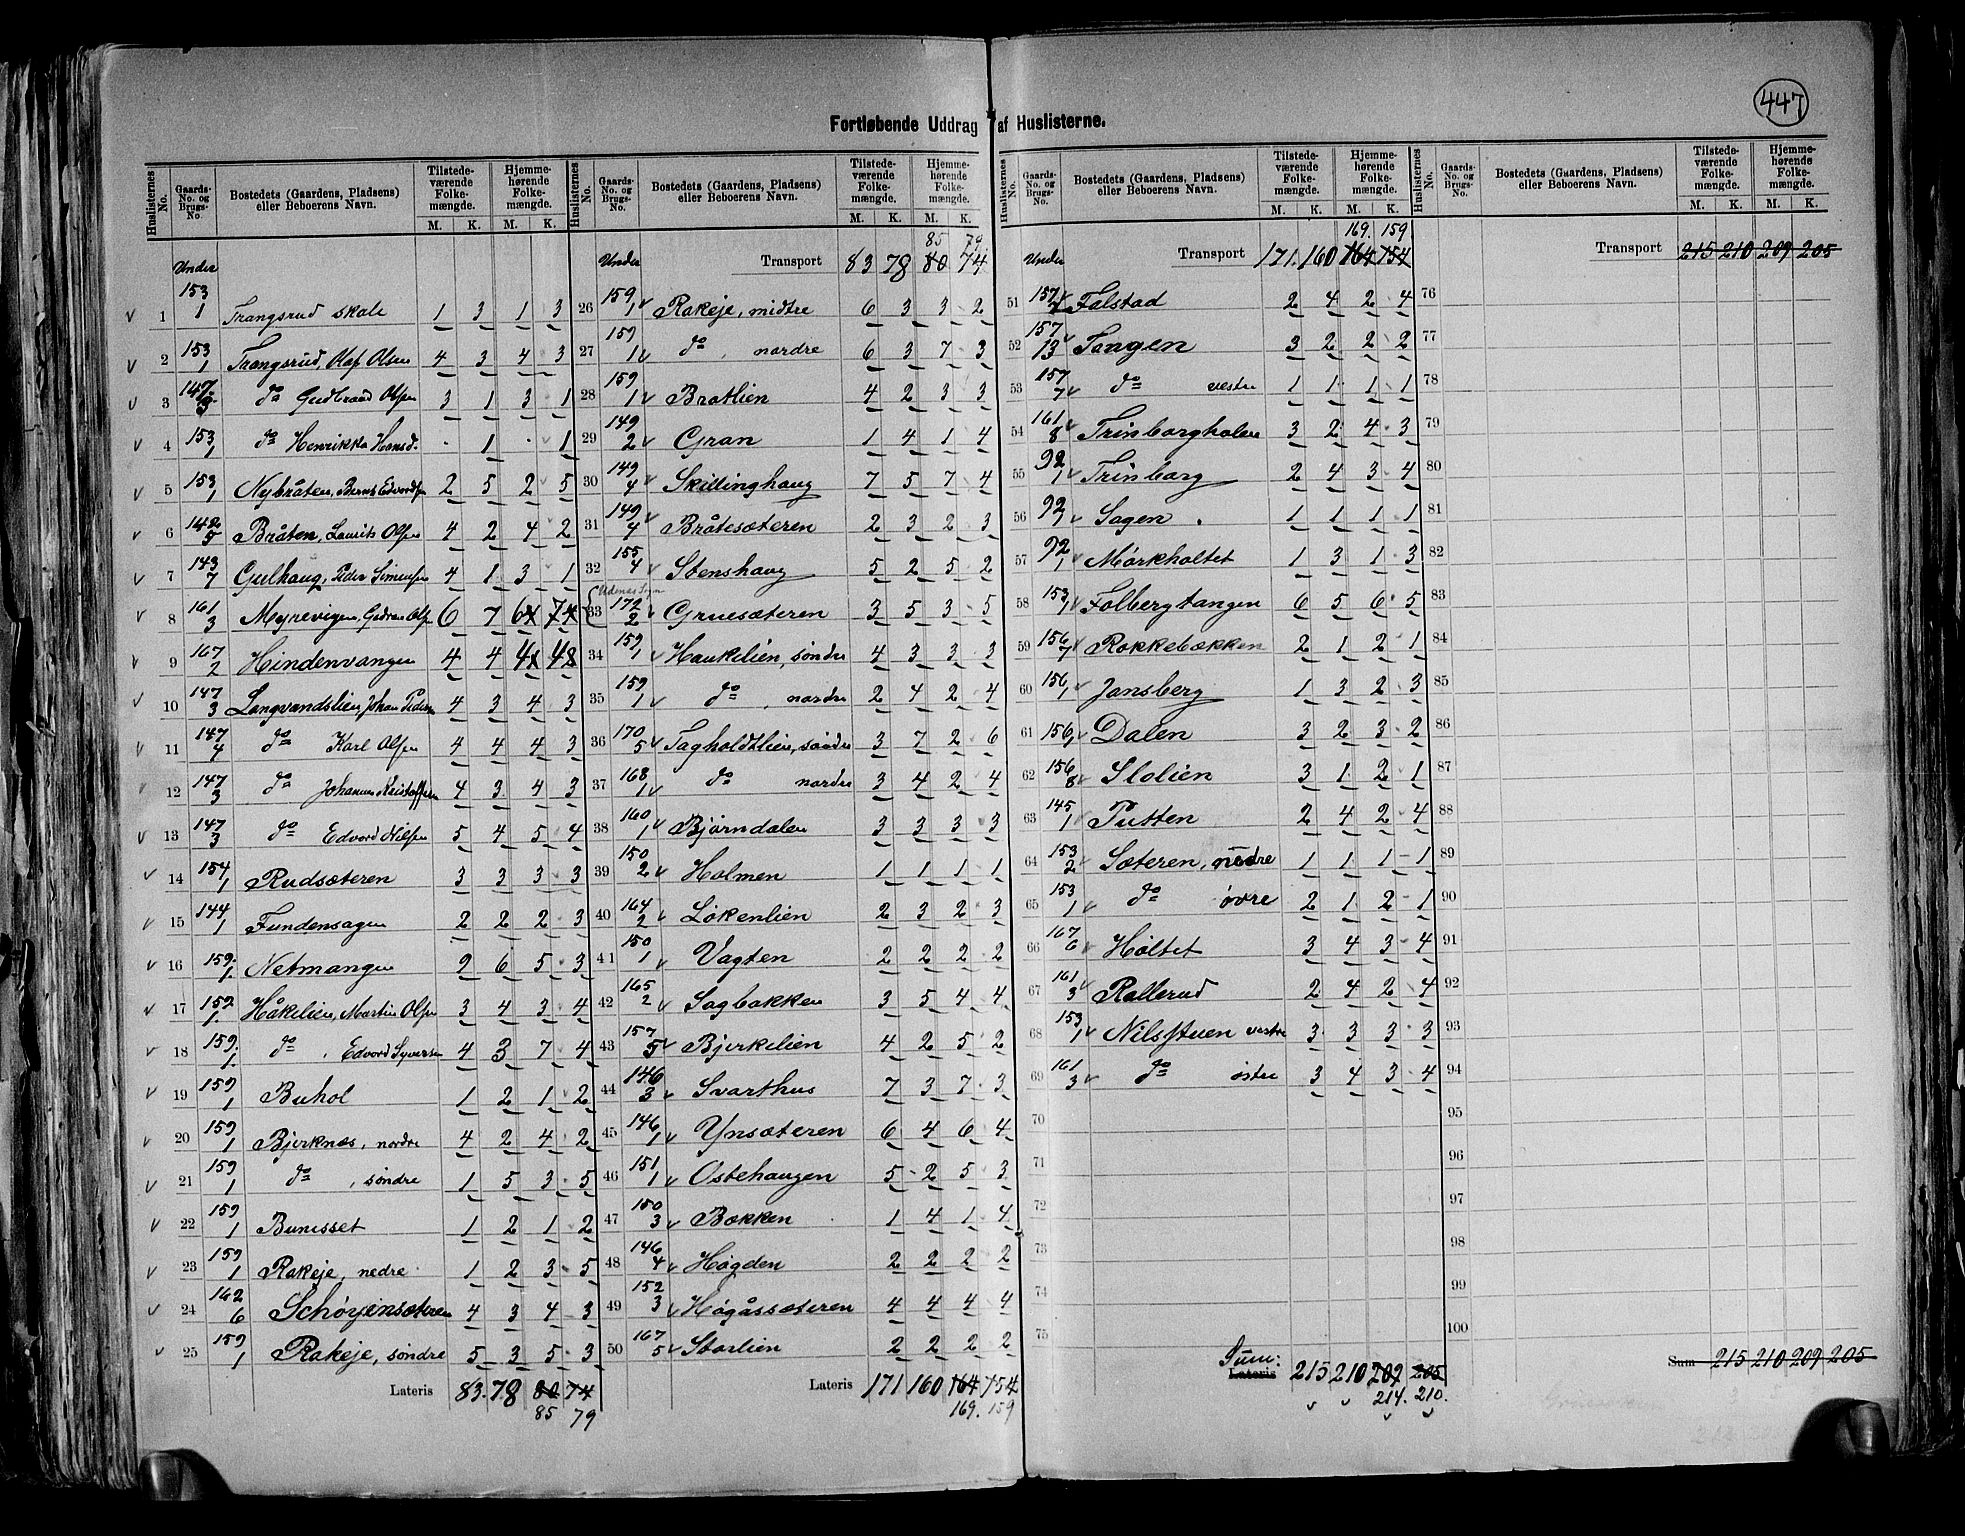 447
Fortløbende Uddrag af Huslisterne.
Huslisternes No. Gaards-No. og Brugs-No. Bostedets (Gaardens, Pladsens) eller Beboerens Navn. Tilstedeværende Folkemængde. M. K. Hjemmehørende Folkemængde. M. K.
Under
1 153/1 Trangsrud skole 1 3 1 3
2 153/1 Trangsrud, Olaf Olsen 4 3 4 3
3 147/3 do Gudbrand Olsen 3 1 3 1
4 153/1 do Henrikka Hansd. . 1 . 1
5 153/1 Nybråten, Bernt Edvardsen 2 5 2 5
6 142/5 Bråten, Laurits Olsen 4 2 4 2
7 143/7 Gulhaug, Peder Simensen 4 1 3 1
8 161/3 Myrevigen, Olsen 6 7 6 7
9 167/2 Hindenvangen 4 4 4 4
10 147/3 Langvandslien, Johan Peders 4 3 4 3
11 147/4 do Karl Olsen 4 4 4 3
12 147/3 do Johannes Kristoffersen 4 3 4 3
13 147/3 do Edvard Nilsen 5 4 5 4
14 154/1 Rudsæteren 3 3 3 3
15 144/1 Fundensagen 2 2 2 3
16 159/1 Netmangen 2 6 5 3
17 159/1 Håkilien, Martin Olsen 3 4 3 4
18 159/1 do, Edvard Syversen 4 3 7 4
19 159/1 Buhol 1 2 1 2
20 159/1 Bjerknæs, nordre 4 2 4 2
21 159/1 do, søndre 1 5 3 5
22 159/1 Bunesset 1 2 1 2
23 159/1 Rakeje, nedre 1 2 3 5
24 162/6 Schørjensæteren 4 3 4 3
25 159/1 Rakeje, søndre 5 3 5 3
Lateris 83. 78 80 74
85 79
Huslisternes No. Gaards-No. og Brugs-No. Bostedets (Gaardens, Pladsens) eller Beboerens Navn. Tilstedeværende Folkemængde. M. K. Hjemmehørende Folkemængde. M. K.
85 79
Under Transport 83 78 80 74
26 159/1 Rakeje, midtre 6 3 3 2
27 159/1 do, nordre 6 3 7 3
28 159/1 Bratlien 4 2 3 3
29 149/2 Gran 1 4 1 4
30 149/4 Skillinghaug 7 5 7 4
31 149/4 Bråtesæteren 2 3 2 3
32 155/4 Stenshaug 5 2 5 2
33 172/2 Gruesæteren 3 5 3 5
34 159/1 Haukilien, søndre 4 3 3 3
35 159/1 do, nordre 2 4 2 4
36 170/5 Tagholdtlien, søndre 3 7 2 6
37 168/1 do nordre 3 4 2 4
38 160/1 Bjørndalen 3 3 3 3
39 150/2 Holmen 1 1 1 1
40 164/2 Løkenlien 2 3 2 3
41 150/1 Vagten 2 2 2 2
42 165/2 Sagbakken 3 5 4 4
43 157/5 Bjerkelien 4 2 5 2
44 146/3 Svarthus 7 3 7 3
45 146/1 Ynsæteren 6 4 6 4
46 151/1 Ostehaugen 5 2 5 3
47 150/3 Bækken 1 4 1 4
48 146/4 Høgden 2 2 2 2
49 152/3 Høgåssæteren 4 4 4 4
50 167/5 Storlien 2 2 2 2
Lateris 171 160 164 154
169. 159
Huslisternes No. Gaards-No. og Brugs-No. Bostedets (Gaardens, Pladsens) eller Beboerens Navn. Tilstedeværende Folkemængde. M. K. Hjemmehørende Folkemængde. M. K.
169. 159
Under Transport 171. 160 164 154
51 157/7 Falstad 2 4 2 4
52 157/13 Tangen 3 2 2 2
53 157/7 do vestre 1 1 1 1
54 161/8 Trinborgholen 3 2 4 3
55 92/1 Trinborg 2 4 3 4
56 92/1 Sagen. 1 1 1 1
57 92/1 Mørkholtet 1 3 1 3
58 153/1 Folbergtangen 6 5 6 5
59 156/7 Rokkebækken 2 1 2 1
60 156/1 Jansberg 1 3 2 3
61 156/1 Dalen 3 2 3 2
62 156/8 Slolien 3 1 2 1
63 145/1 Putten 2 4 2 4
64 153/2 Sæteren, nedre 1 1 1 1
65 153/1 do øvre 2 1 2 1
66 167/6 Holtet 3 4 3 4
67 161/3 Rallerud 2 4 2 4
68 153/1 Nilsstuen vestre 3 3 3 3
69 161/3 do østre 3 4 3 4
70
71
72
73
74
75
Sum:
Lateris 215 210 209 205
214. 210.
Huslisternes No. Gaards-No. og Brugs-No. Bostedets (Gaardens, Pladsens) eller Beboerens Navn. Tilstedeværende Folkemængde. M. K. Hjemmehørende Folkemængde. M. K.
Transport 215 210 209 205
76
77
78
79
80
81
82
83
84
85
86
87
88
89
90
91
92
93
94
95
96
97
98
99
100
Sum 215 210 209 205